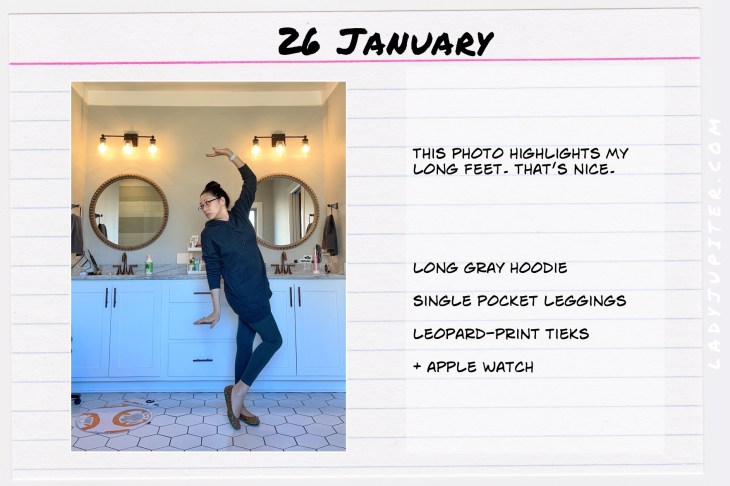 26 JANUARY
THIS PHOTO HIGHLIGHTS MY
LONG FEET. THAT'S NICE.
LONG GRAY HOODIE
SINGLE POCKET LEGGINGS
LEOPARD-PRINT TIEKS
+ APPLE WATCH
LADYJUPITER.COM